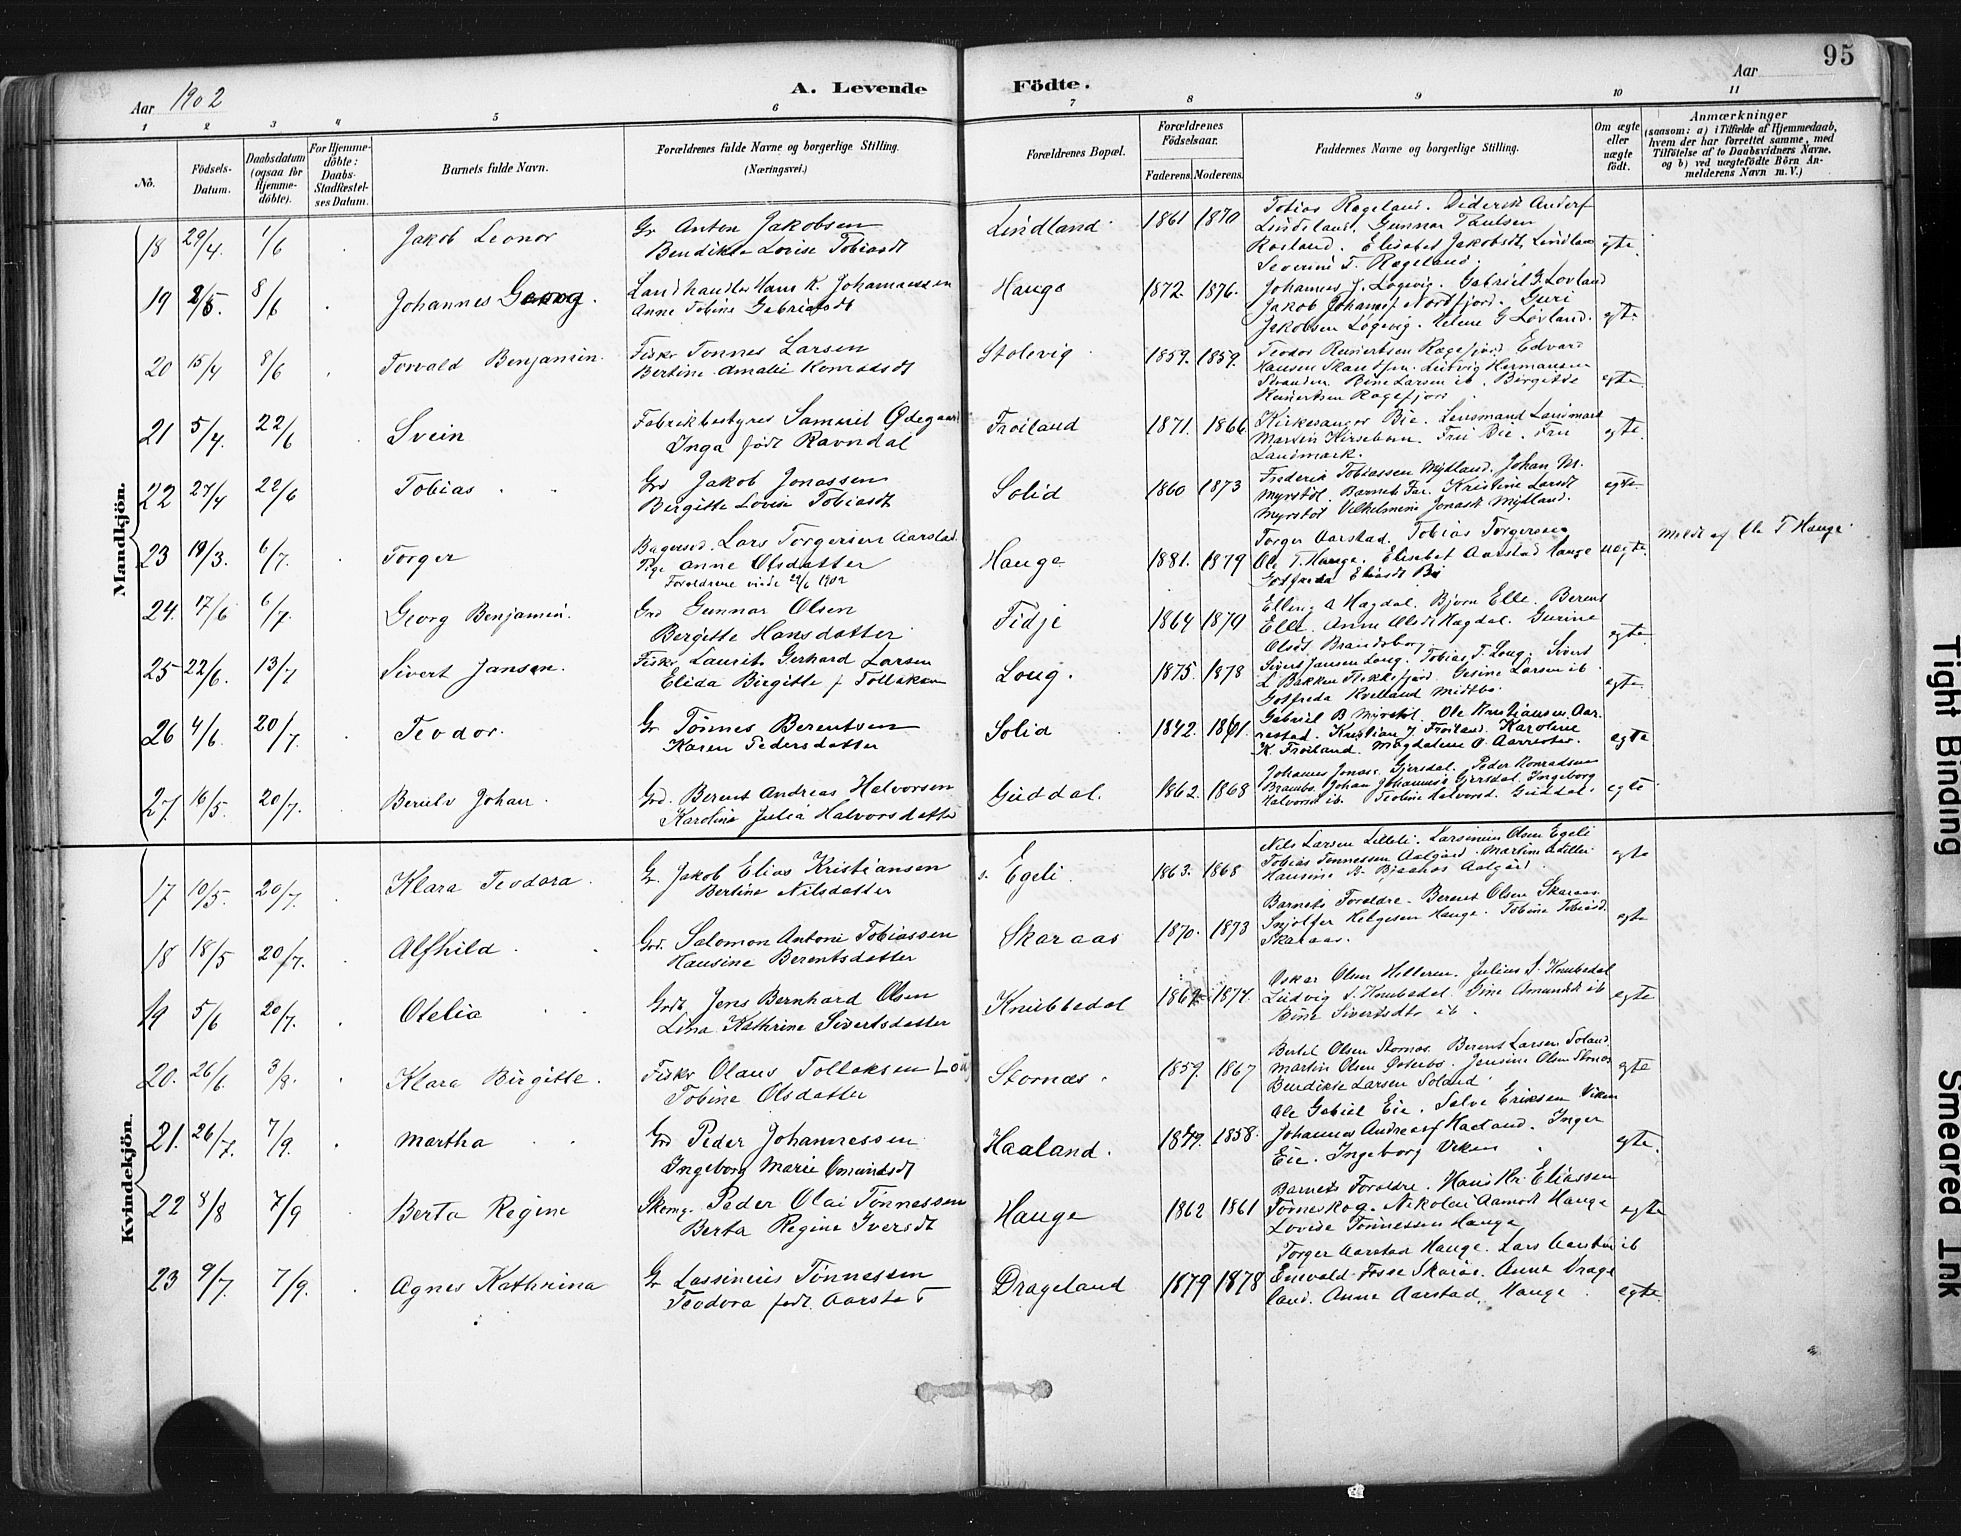 95
Aar 1902
A. Levende Födte.
Aar
1 2 3 4 5 6 7 8 9 10 11
No.
Födsels-Datum.
Daabsdatum (ogsaa for Hjemmedöbte).
For Hjemmedöbte: Daabs-Stadfæstelses Datum.
Barnets fulde Navn.
Forældrenes fulde Navne og borgerlige Stilling. (Næringsvei.)
Forældrenes Bopæl.
Forældrenes Födselsaar.
Faderens. Moderens.
Faddernes Navne og borgerlige Stilling.
Om ægte eller uægte födt.
Anmærkninger (saasom: a) i Tilfælde af Hjemmedaab, hvem der har forrettet samme, med Tilföielse af to Daabsvidners Navne. og b) ved uægtefödte Börn Anmelderens Navn m. V.)
Mandkjön.
18 29/4. 1/6 Jakob Leonor
Gr Anton Jakobsen
Bendikte Lovise Tobiasdt
Lindland 1861 1870
Tobias Rageland. Diderik Anders
Lindland, Gunnar Paulsen
Rosland. Elisabet Jakobsdt, Lindlan
Severine T. Rageland.
egte
19 2/5. 8/6 Johannes Georg.
Landhandler Hans K. Johannessen
Anne Tobine Gabrielsdt
Hauge 1872. 1876.
Johannes J. Løgevig. Gabriel G. Lovland
Jakob Johannes Nordfjord. Guri
Jakobsen Løgevig. Helene G Løvland.
egte
20 15/4 8/6 Torvald Benjamin.
Fiskr Tønnes Larsen
Bertine Amalie Konradsdt
Stolevig 1859. 1859.
Teodor Reinertsen Ragefjord Edvard
Hansen Skandfer. Ludvig Hermansen
Stranden. Bine Larsen ib. Birgitte
Reinertsen Ragefjord
egte
21 5/4. 22/6 Svein
Fabrikbestyrer Samuel Ødegaard
Inga født Ravndal
Frøiland 1871. 1866
Kirkesanger Bie. Lensmand Landmark
Martin Kirsebom. Fru Bie. Fru
Landmark.
egte
22 27/4 22/6 Tobias
Grd Jakob Jonassen
Bergitte Lovise Tobiasdt
Solid 1860 1873
Frederik Tobiassen Mydland. Johan M.
Myrstøl. Barnets Far. Kristine Larsdt
Myrstøl Vilhelmine Jonasdt Mydland.
egte
23 19/3. 6/7. Torger
Bagersv. Lars Torgersen Aarstad.
Pige Anne Olsdatter
Forældrene viede 29/6 1902
Hauge 1881. 1879
Torger Aarstad. Tobias Torgersen
Ole T. Hauge. Elisabet Aarstad Hauge
Gotfreda Eliasdt Bø
uegte Meldt af Ole T Hauge
24. 17/6 6/7. Georg Benjamin.
Grd Gunnar Olsen
Bergitte Hansdatter
Fidje 1864 1870
Elling A Hægdal. Bjørn Elle. Berent
Elle. Anne Olsdt Hægdal. Gurine
Olsdt Brandsberg
egte
25 22/6. 13/7 Sivert Jansen.
Fiskr Laurits Gerhard Larsen
Elida Birgitte f Tollaksen
Loug. 1875. 1878
Sivert Jansen Loug. Tobias T. Loug. Sivert
L Bakken Flekkefjord Gesine Larsen ib.
Gotfreda Kvelland Midtbø
egte
26 4/6. 20/7. Teodor.
Gr Tønnes Berentsen
Karen Pedersdatter
Solid 1842. 1861.
Gabriel B Myrstøl. Ole Kristiansen Aar
restad. Kristian J Frøiland. Karoline
K. Frøiland. Magdalene O. Aarrestad.
egte
27 16/5. 20/7. Berulv Johan.
Grd. Berent Andreas Halvorsen
Karoline Julia Halvorsdatter
Guddal. 1862. 1868
Johannes Jonass. Gjersdal. Peder Konradsen
Johan Johannes Gjersdal. Ingeborg
Halvorsdt ib. Tobine Halvorsd. Guddal.
egte
Kvindekjön.
17 10/5. 20/7. Klara Teodora.
Gr. Jakob Elias Kristiansen
Bertine Nilsdatter
Egeli. 1863. 1868
Nils Larsen Lilleli. Larsinius Olsen Egeli
Tobias Tønnessen Aalgård. Martine
Hansine Aalgård
egte
18 18/5 20/7. Alfhild
Grd. Salomon Antoni Tobiassen
Hansine Berentsdatter
Skaraas 1870. 1873
Barnets Foreldre. Berent Olsen Skaraas.
Helgesen Hauge. Tobine Tobiasd.
Skaraas.
egte
19 5/6 20/7. Otelie
Grdb. Jens Bernhard Olsen
Lina Kathrine Sivertsdatter
Knubbedal 1874.
Oskar Olsen Helleren. Julius S. Knubedal
Ludvig S. Knubedal. Gine Amundsdt ib
Bine Sivertsdtr ib.
egte
20. 26/6. 3/8. Klara Birgitte.
Fiskr Olaus Tollaksen Loug
Tobine Olsdatter
Stornes. 1859. 1867
Bertel Olsen Stornes. Berent Larsen Soland.
Martin Olsen Østebø. Jensine Olsen Stornes
Bendikte Larsen Soland.
egte
21. 26/7. 7/9. Martha
Grd Peder Johannessen
Ingeborg Marie Omundsdt
Haaland. 1849. 1858.
Ole Gabriel Eie. Salve Eriksen Viken
Johannes Andreas Haaland. Inger
Eie. Ingeborg Viken
egte.
22 8/8 7/9 Berta Regine
Skomg. Peder Olai Tønnessen
Berta Regine Iversdt
Hauge 1862 1861
Barnets Foreldre. Hans Kr. Eliassen
Torneskog. Nikolai Aamodt Hauge
Lovise Tønnessen Hauge
egte
23 9/7. 7/9. Agnes Kathrina
Gr Lassinius Tønnessen
Teodora født Aarstad
Drageland 1879 1878
Torger Aarstad Hauge. Lars Aarstad ib
Enevald Fosse Skaraas. Anne Drage
land. Anne Aarstad, Hauge
egte.
Tight Binding
Smeared Ink